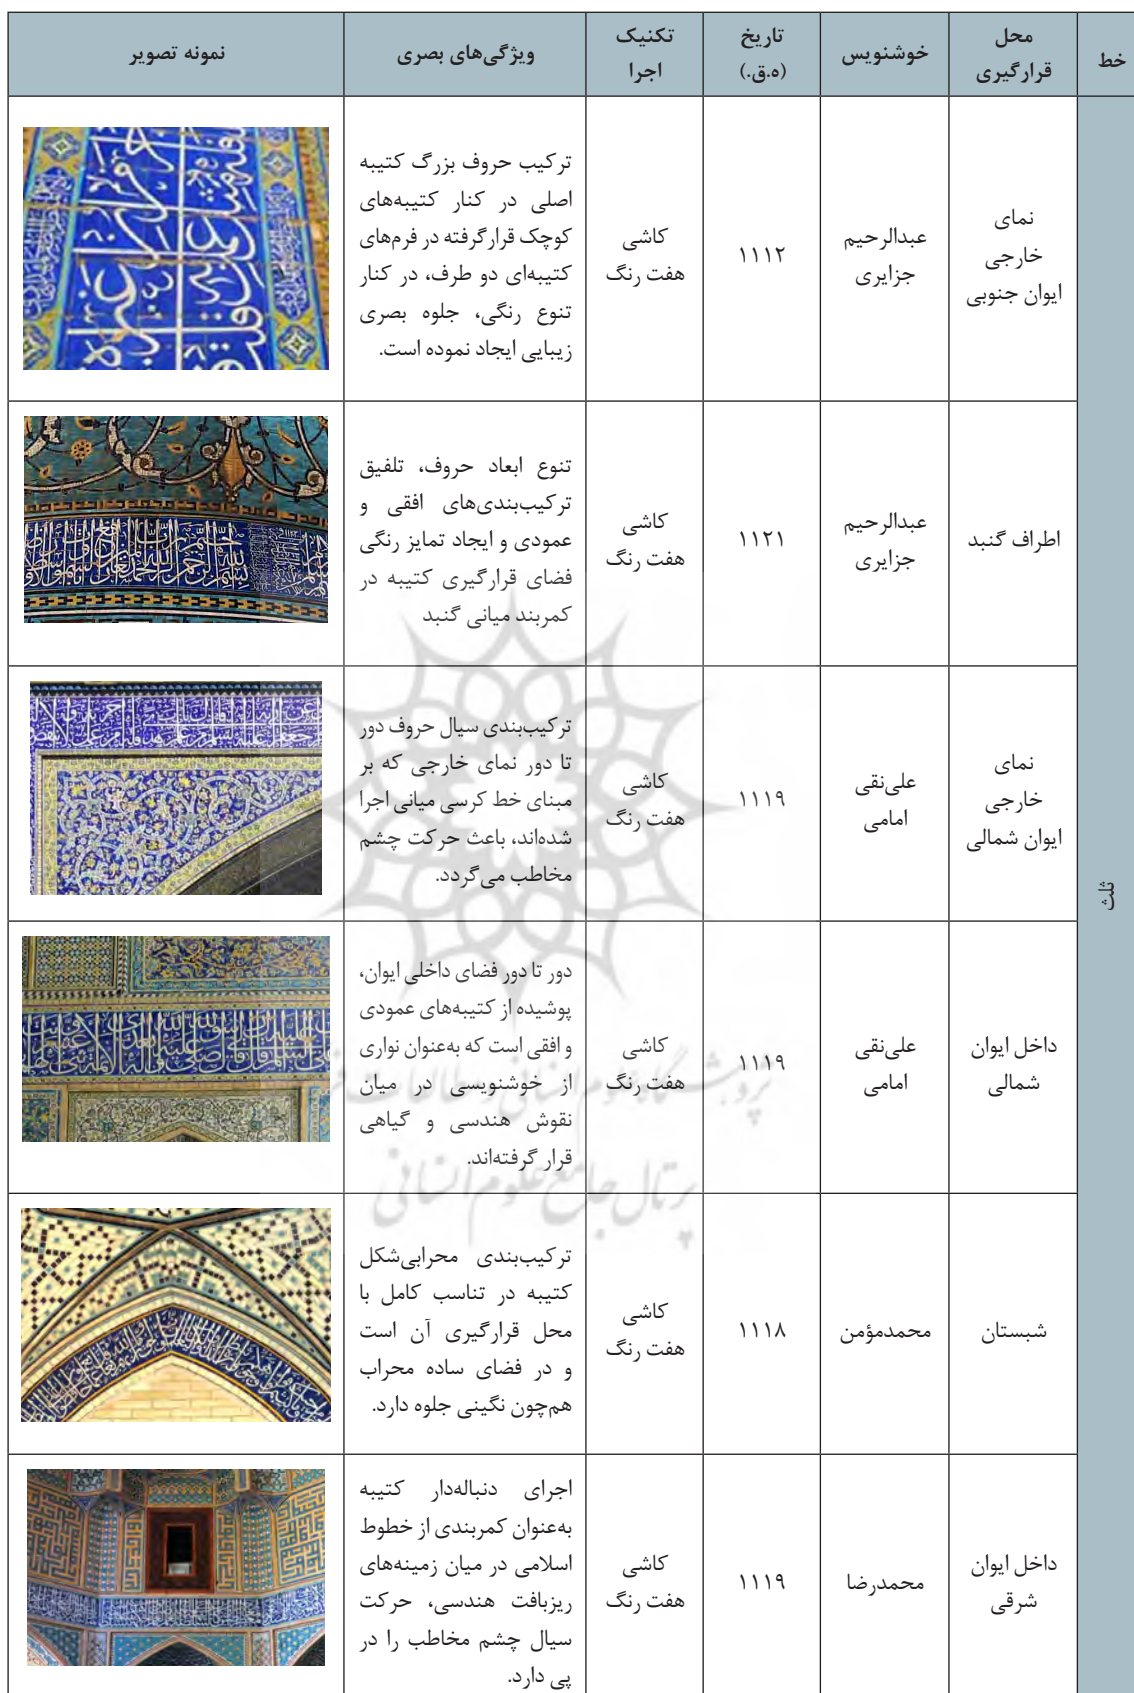 خط
محل
قرارگیری
خوشنویس
تاریخ
(ه.ق.)
تکنیک
اجرا
ویژگی‌های بصری
نمونه تصویر
ثلث
نمای
خارجی
ایوان جنوبی
عبدالرحیم
جزایری
۱۱۱۲
کاشی
هفت رنگ
ترکیب حروف بزرگ کتیبه
اصلی در کنار کتیبه‌های
کوچک قرارگرفته در فرم‌های
کتیبه‌ای دو طرف، در کنار
تنوع رنگی، جلوه بصری
زیبایی ایجاد نموده است.
اطراف گنبد
عبدالرحیم
جزایری
۱۱۲۱
کاشی
هفت رنگ
تنوع ابعاد حروف، تلفیق
ترکیب‌بندی‌های افقی و
عمودی و ایجاد تمایز رنگی
فضای قرارگیری کتیبه در
کمربند میانی گنبد
نمای
خارجی
ایوان شمالی
علی‌نقی
امامی
۱۱۱۹
کاشی
هفت رنگ
ترکیب‌بندی سیال حروف دور
تا دور نمای خارجی که بر
مبنای خط کرسی میانی اجرا
شده‌اند، باعث حرکت چشم
مخاطب می‌گردد.
داخل ایوان
شمالی
علی‌نقی
امامی
۱۱۱۹
کاشی
هفت رنگ
دور تا دور فضای داخلی ایوان،
پوشیده از کتیبه‌های عمودی
و افقی است که به‌عنوان نواری
از خوشنویسی در میان
نقوش هندسی و گیاهی
قرار گرفته‌اند.
شبستان
محمدمؤمن
۱۱۱۸
کاشی
هفت رنگ
ترکیب‌بندی محرابی‌شکل
کتیبه در تناسب کامل با
محل قرارگیری آن است
و در فضای ساده محراب
هم‌چون نگینی جلوه دارد.
داخل ایوان
شرقی
محمدرضا
۱۱۱۹
کاشی
هفت رنگ
اجرای دنباله‌دار کتیبه
به‌عنوان کمربندی از خطوط
اسلامی در میان زمینه‌های
ریزبافت هندسی، حرکت
سیال چشم مخاطب را در
پی دارد.
پژوهشگاه علوم انسانی و مطالعات فرهنگی
پرتال جامع علوم انسانی